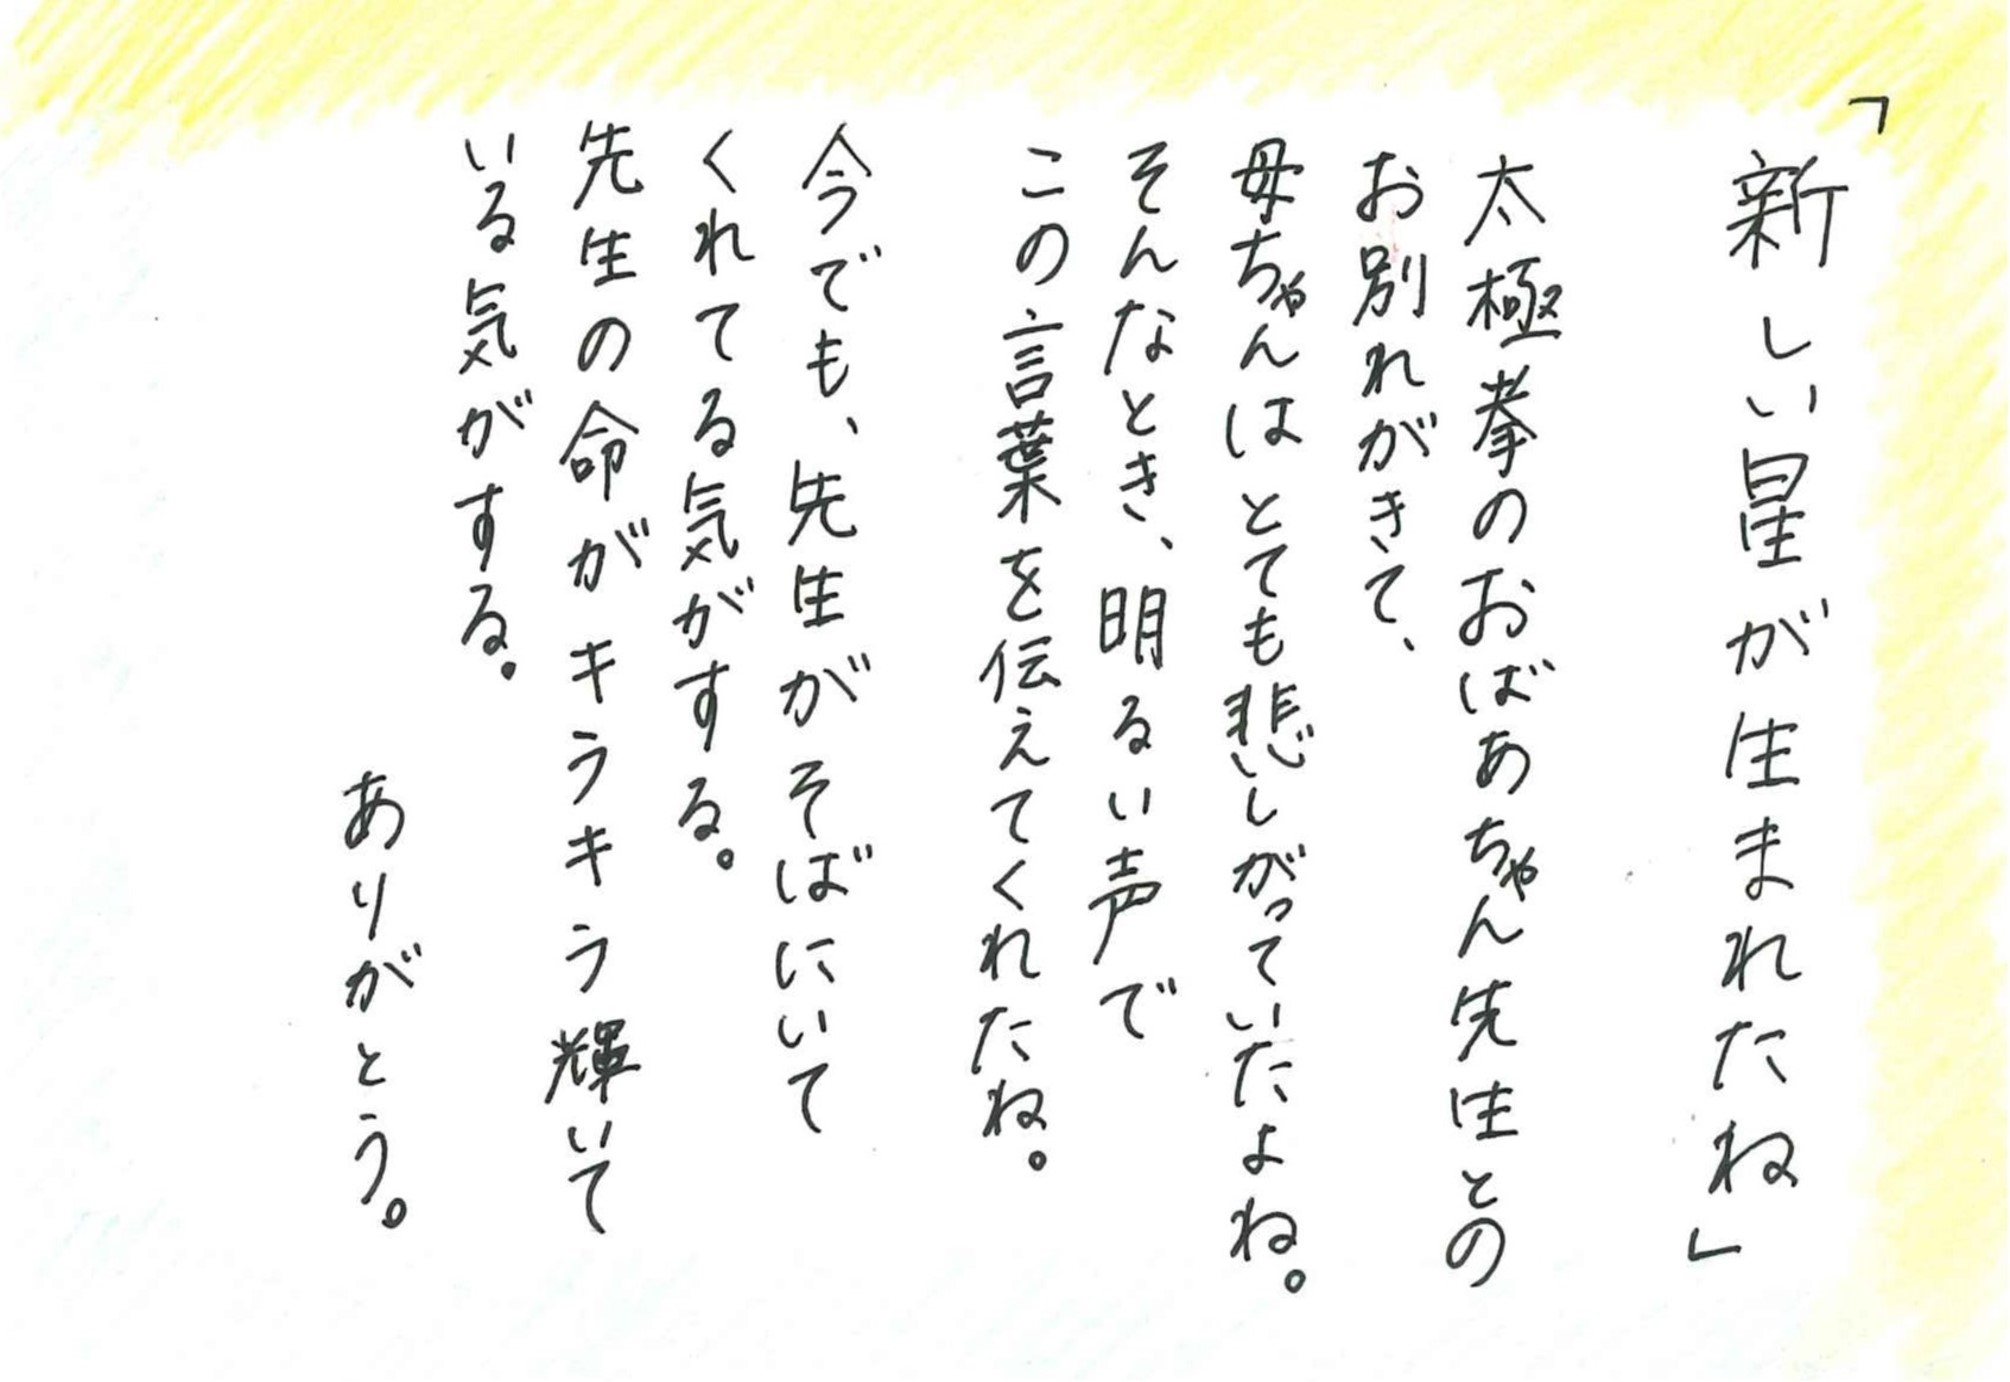 「新しい星が生まれたね」
太極拳のおばあちゃん先生との
お別れがきて、
母ちゃんはとても悲しがっていたよね。
そんなとき、明るい声で
この言葉を伝えてくれたね。
今でも、先生がそばにいて
くれてる気がする。
先生の命がキラキラ輝いて
いる気がする。
ありがとう。